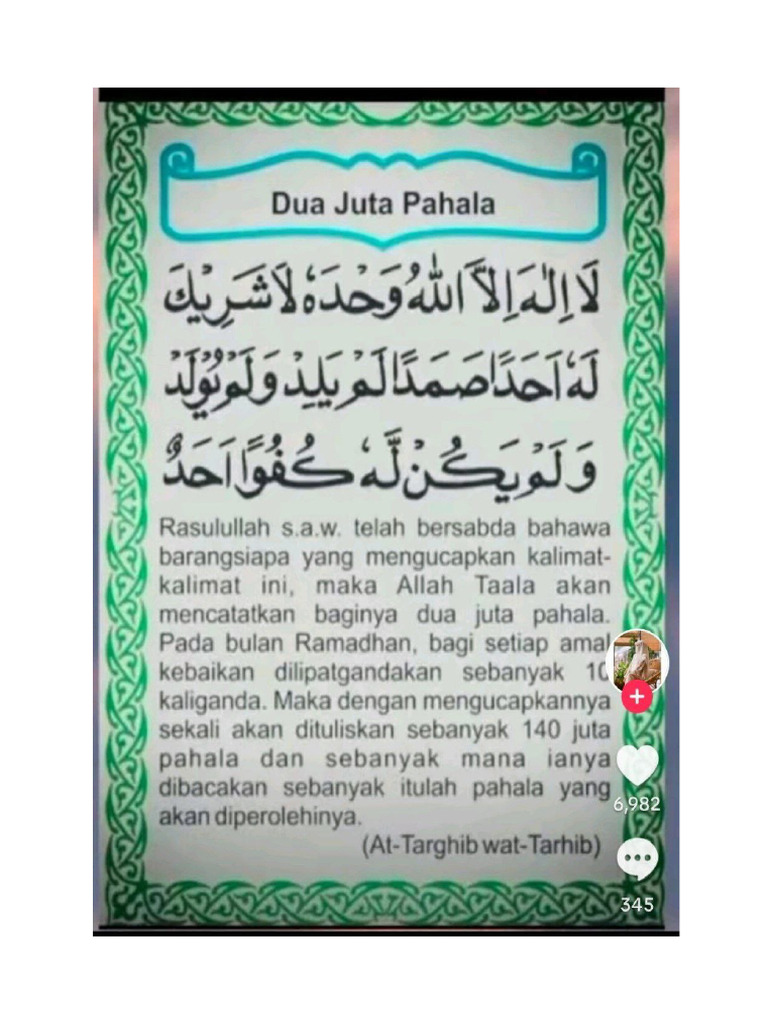 Dua Juta Pahala
لَا اِلٰهَ اِلاَّ اللهُ وَحْدَهٗ لَا شَرِيْكَ
لَهٗ اَحَدًا صَمَدًا لَمْ يَلِدْ وَلَمْ يُوْلَدْ
وَلَمْ يَكُنْ لَّهٗ كُفُوًا اَحَدٌ
Rasulullah s.a.w. telah bersabda bahawa
barangsiapa yang mengucapkan kalimat-
kalimat ini, maka Allah Taala akan
mencatatkan baginya dua juta pahala.
Pada bulan Ramadhan, bagi setiap amal
kebaikan dilipatgandakan sebanyak
kaliganda. Maka dengan mengucapkannya
sekali akan dituliskan sebanyak 140 juta
pahala dan sebanyak mana ianya
dibacakan sebanyak itulah pahala yang
akan diperolehinya.
(At-Targhib wat-Tarhib)
6,982
345